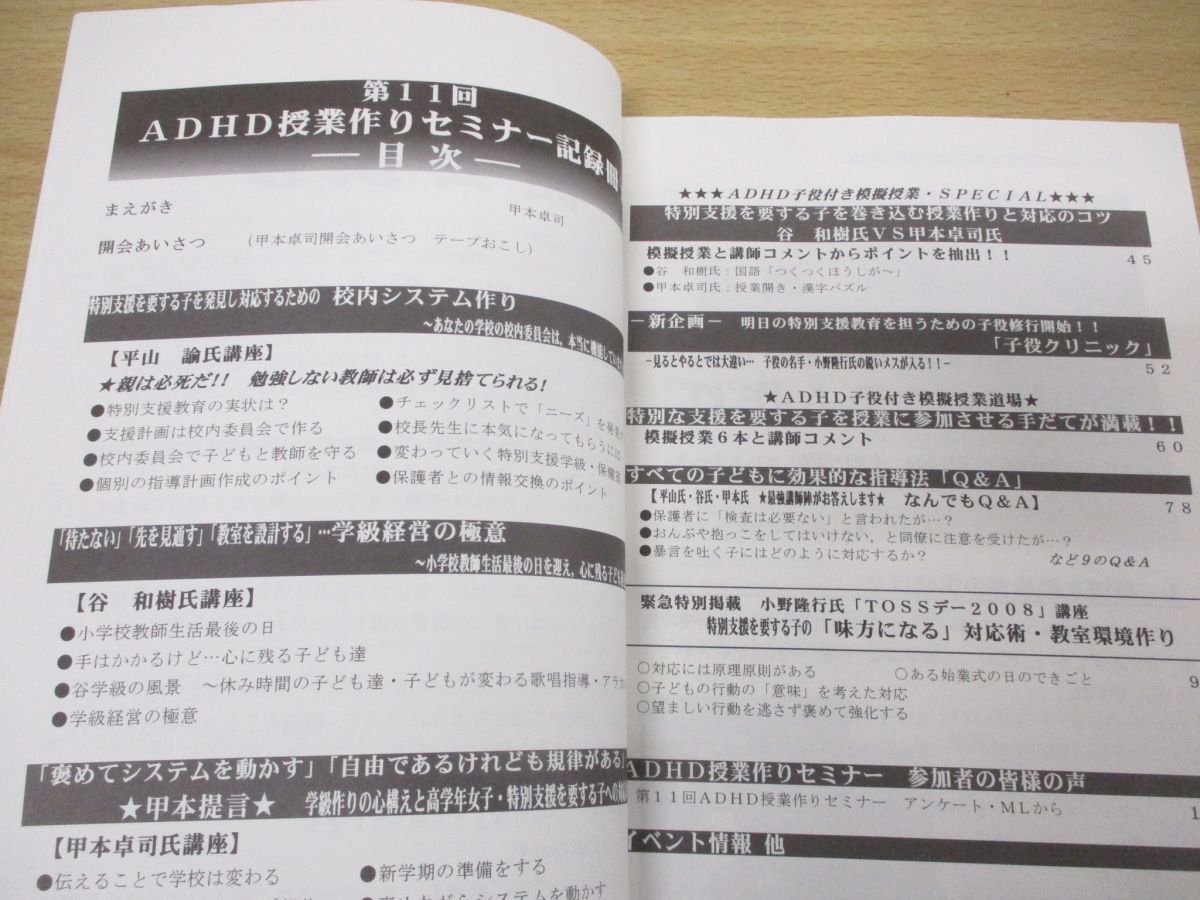 第11回
ADHD授業作りセミナー記録冊
―目 次―
まえがき 甲本卓司
開会あいさつ (甲本卓司開会あいさつ テープおこし)
特別支援を要する子を発見し対応するための 校内システム作り
～あなたの学校の校内委員会は、本当に機能してい
【平山 諭氏講座】
★親は必死だ!! 勉強しない教師は必ず見捨てられる!
●特別支援教育の実状は？
●支援計画は校内委員会で作る
●校内委員会で子どもと教師を守る
●個別の指導計画作成のポイント
●チェックリストで「ニーズ」を発見
●校長先生に本気になってもらうには
●変わっていく特別支援学級・保健
●保護者との情報交換のポイント
「待たない」「先を見通す」「教室を設計する」…学級経営の極意
～小学校教師生活最後の日を迎え，心に残る子ども達
【谷 和樹氏講座】
●小学校教師生活最後の日
●手はかかるけど…心に残る子ども達
●谷学級の風景 ～休み時間の子ども達・子どもが変わる歌唱指導・アラカ
●学級経営の極意
「褒めてシステムを動かす」「自由であるけれども規律がある」
★甲本提言★ 学級作りの心構えと高学年女子・特別支援を要する子への対
【甲本卓司氏講座】
●伝えることで学校は変わる
●新学期の準備をする
●褒めながらシステムを動かす
★★★ADHD子役付き模擬授業・SPECIAL★★★
特別支援を要する子を巻き込む授業作りと対応のコツ
谷 和樹氏VS甲本卓司氏
模擬授業と講師コメントからポイントを抽出!! 45
●谷 和樹氏：国語「つくつくほうしが～」
●甲本卓司氏：授業開き・漢字パズル
－新企画－ 明日の特別支援教育を担うための子役修行開始!!
「子役クリニック」
－見るとやるとでは大違い… 子役の名手・小野隆行氏の鋭いメスが入る!!－ 52
★ADHD子役付き模擬授業道場★
特別な支援を要する子を授業に参加させる手だてが満載!!
模擬授業6本と講師コメント 60
すべての子どもに効果的な指導法「Q&A」
【平山氏・谷氏・甲本氏 ★最強講師陣がお答えします★ なんでもQ&A】 78
●保護者に「検査は必要ない」と言われたが…？
●おんぶや抱っこをしてはいけない，と同僚に注意を受けたが…？
●暴言を吐く子にはどのように対応するか？ など9のQ&A
緊急特別掲載 小野隆行氏「TOSSデー2008」講座
特別支援を要する子の「味方になる」対応術・教室環境作り
○対応には原理原則がある ○ある始業式の日のできごと
○子どもの行動の「意味」を考えた対応 9
○望ましい行動を逃さず褒めて強化する
ADHD授業作りセミナー 参加者の皆様の声
第11回ADHD授業作りセミナー アンケート・MLから 1
イベント情報 他